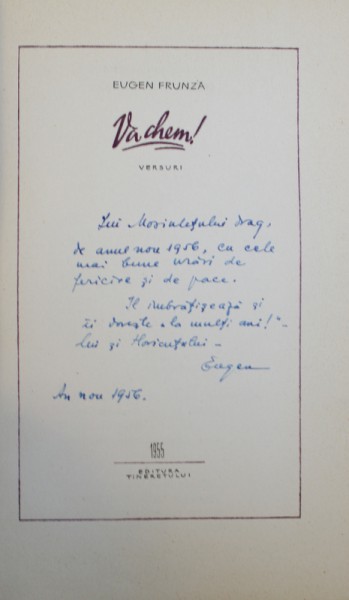 EUGEN FRUNZĂ
Vă chem!
VERSURI
Lui Mosiulețului drag,
de anul nou 1956, cu cele
mai bune urări de
fericire și de pace.
Il îmbrățișează și
îi dorește „la mulți ani!" –
lui și Horicuțului –
Eugen
An nou 1956.
1955
EDITURA
TINERETULUI